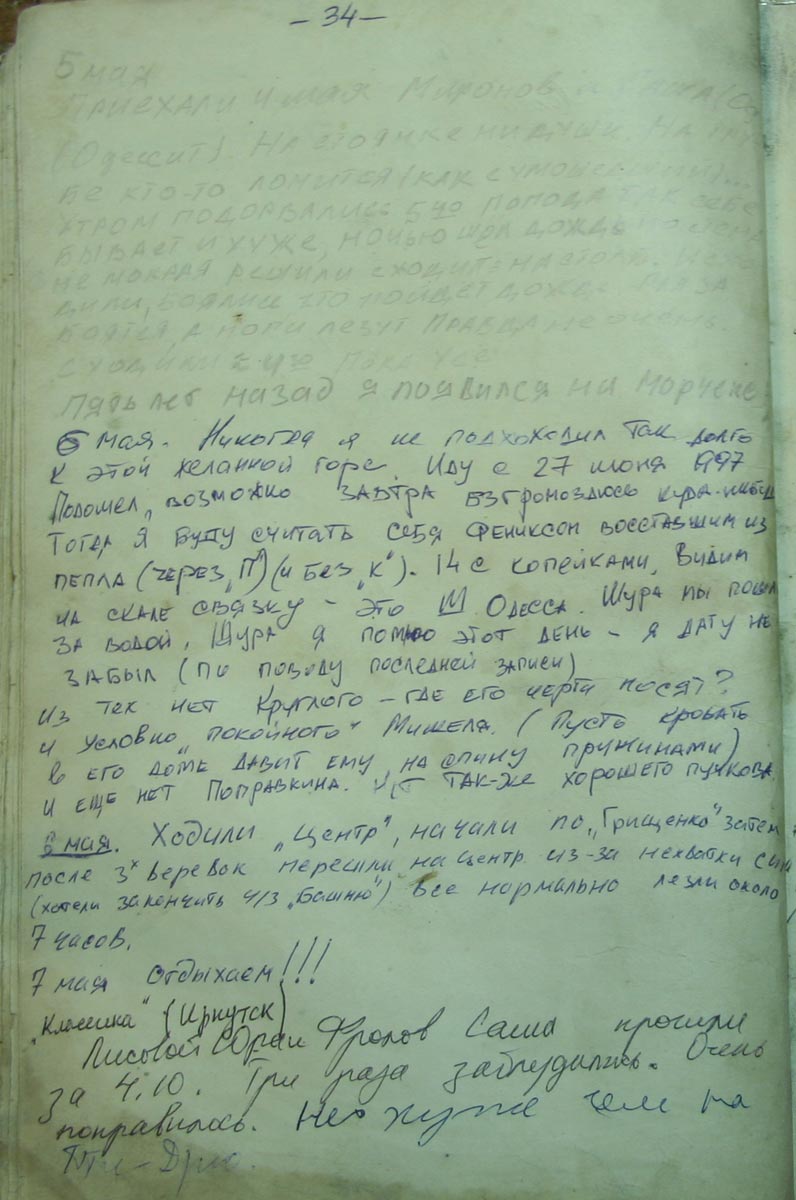 - 34 -
5 мая
Приехали 4 мая Миронов и
(Одессит). На стоянке ни души. На
бе кто-то ломится (как сумошедший)...
утром подорвались 5 чо погода так себе
бывает и хуже, ночью шёл дождь но
не мокрая решили сходить на столб.
дили, боялись что пойдет дождь. Глаза
боятся, а ноги лезут правда не очень.
сходили пока
Пять лет назад я появился на Морчеке
6 мая. Никогда я не подхоходил так долго
к этой желанной горе. Иду с 27 июня 1997
Подошел, возможно завтра взгромоздюсь куда-нибуд
Тогда я буду считать себя Фениксом восставшим из
пепла (через „П") (и без „К"). 14 с копейками, Видим
на скале связку - это Ш. Одесса. Шура мы пошли
за водой, Шура я помню этот день - я дату не
забыл (по поводу последней записи)
Из тех нет Круглого - где его черти носят?
и условно „покойного" Мишеля. (Пусть кровать
в его доме давит ему на спину пружинами)
и еще нет Поправкина. так-же хорошего Пучкова.
6 мая. Ходили „Центр", начали по „Грищенко" затем
после 3х веревок перешли на центр из-за нехватки сил
(хотели закончить ч/з „Башню") все нормально лезли около
7 часов.
7 мая отдыхаем!!!
„Классика" (Иркутск)
Лисовой Юра и Фролов Саша прошли
за 4.10. Три раза заблудились. Очень
понравилось. Не хуже чем на